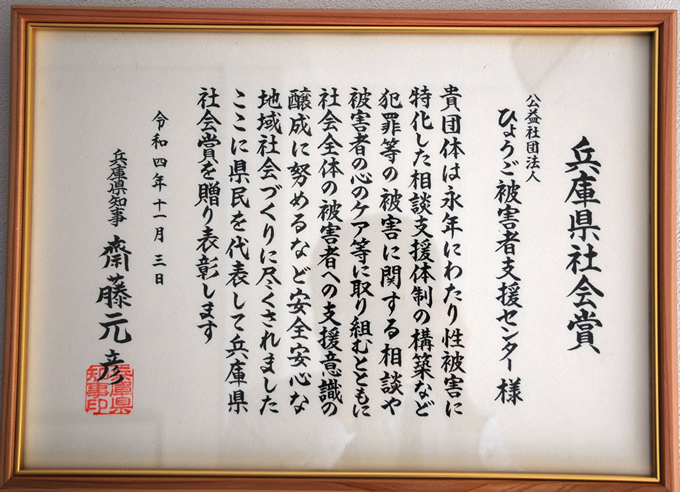 兵庫県社会賞
公益社団法人
ひょうご被害者支援センター 様
貴団体は永年にわたり性被害に
特化した相談支援体制の構築など
犯罪等の被害に関する相談や
被害者の心のケア等に取り組むとともに
社会全体の被害者への支援意識の
醸成に努めるなど安全安心な
地域社会づくりに尽くされました
ここに県民を代表して兵庫県
社会賞を贈り表彰します
令和四年十一月三日
兵庫県知事 齋藤元彦
兵庫県
知事印